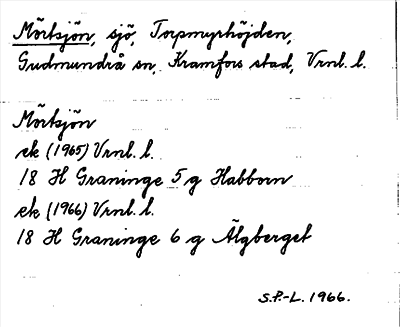 Mörtsjön, sjö, Torpmyrhöjden,
Gudmundrå sn, Kramfors stad, Vrnl. l.
Mörtsjön
ek (1965) Vrnl. l.
18 H Graninge 5 g Habborn
ek (1966) Vrnl. l.
18 H Graninge 6 g Älgberget
S.P.-L. 1966.